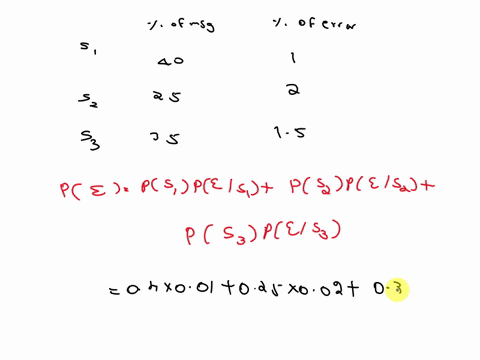 % of msg % of error
S1
40 1
S2 25 2
S3 35 1.5
P(E) = P(S1)P(E/S1) + P(S2)P(E/S2) +
P(S3)P(E/S3)
= 0.4 × 0.01 + 0.25 × 0.02 + 0.3